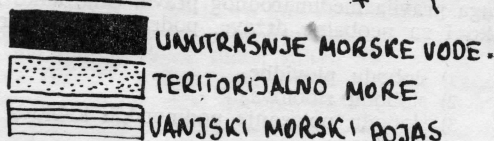 UNUTRAŠNJE MORSKE VODE.
TERITORIJALNO MORE
VANJSKI MORSKI POJAS